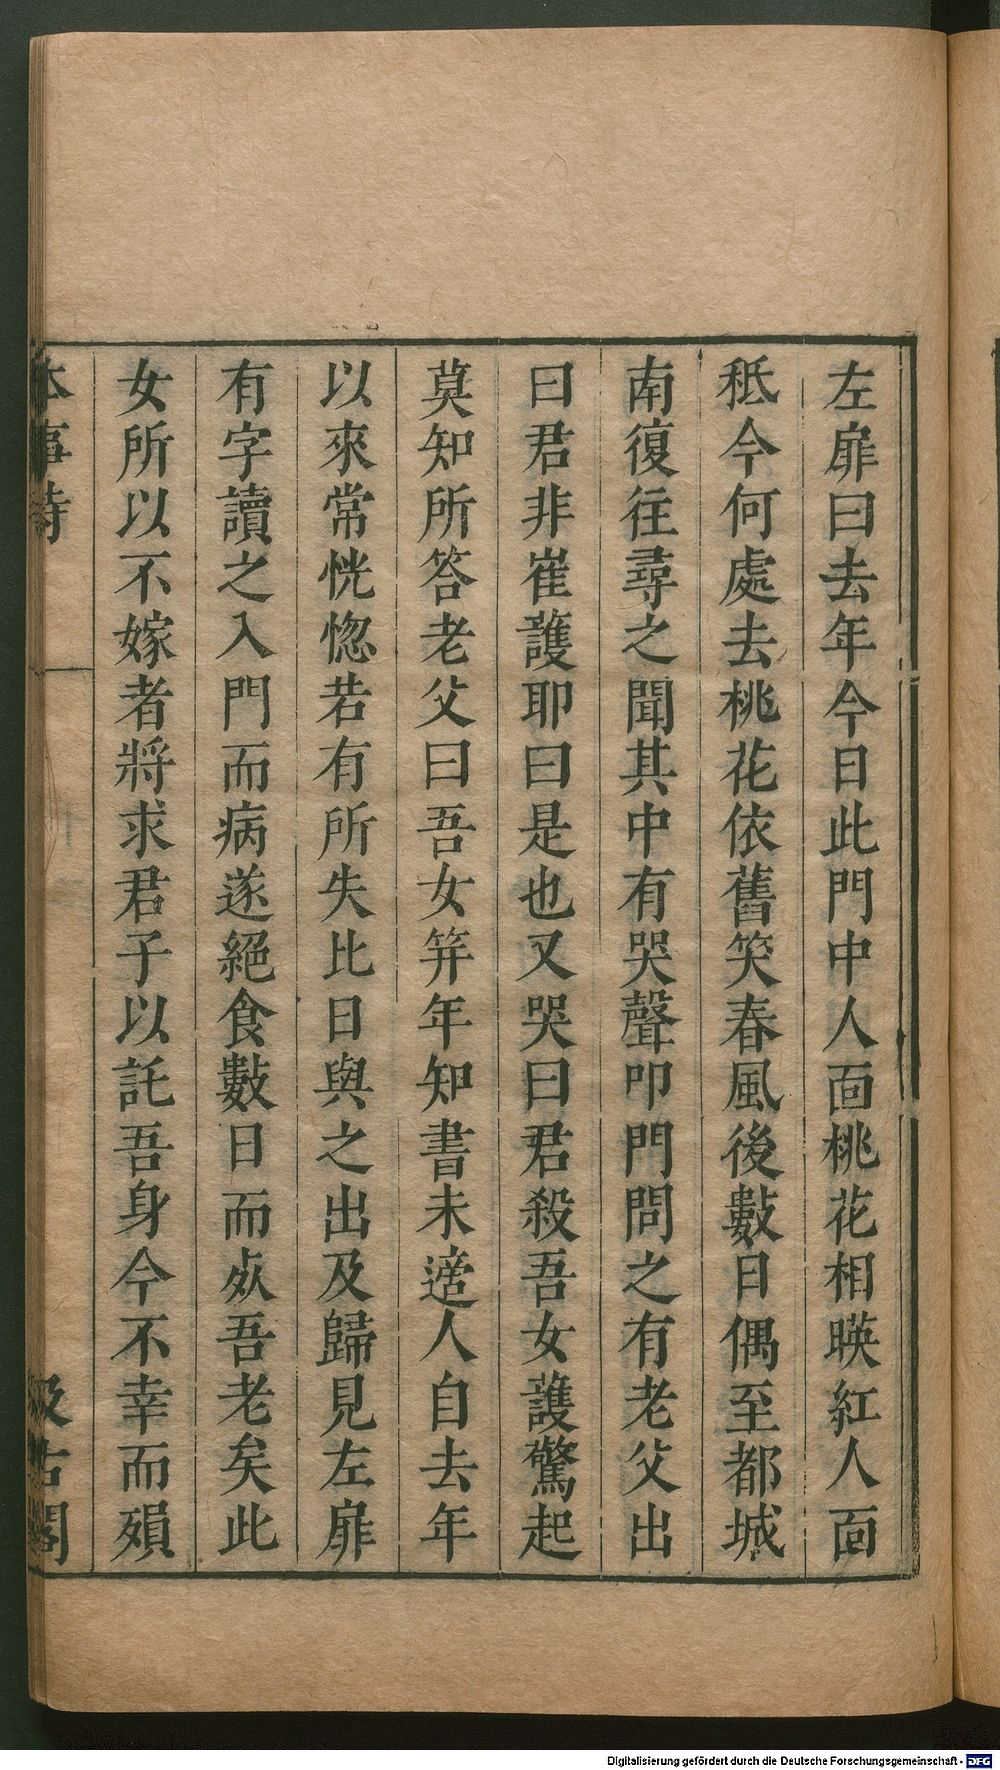 左扉曰去年今日此門中人面桃花相暎紅人面
秖今何處去桃花依舊笑春風後數日偶至都城
南復往尋之聞其中有哭聲叩門問之有老父出
曰君非崔護耶曰是也又哭曰君殺吾女護驚起
莫知所答老父曰吾女笄年知書未適人自去年
以來常恍惚若有所失比日與之出及歸見左扉
有字讀之入門而病遂絕食數日而死吾老矣此
女所以不嫁者將求君子以託吾身今不幸而殞
本事詩
汲古閣
Digitalisierung gefördert durch die Deutsche Forschungsgemeinschaft - DFG